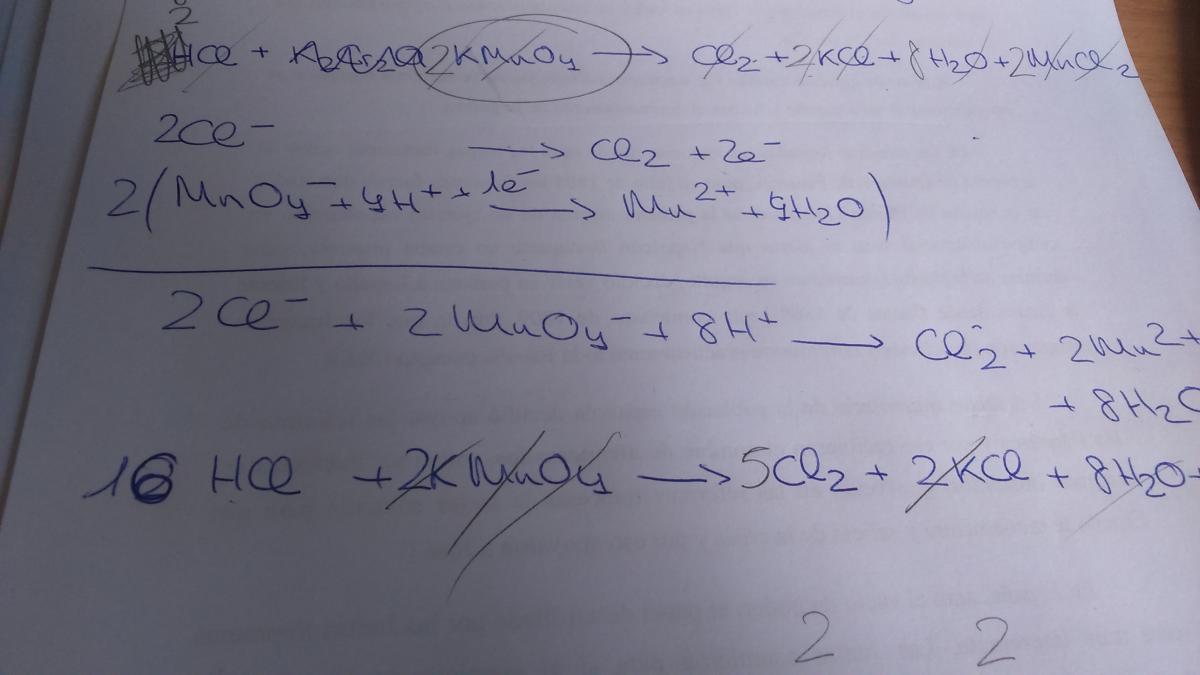 2
HCl + K2Cr2O 2KMnO4 → Cl2 + 2KCl + 8H2O + 2MnCl2
2Cl⁻ → Cl2 + 2e⁻
2(MnO4⁻ + 4H⁺ + 1e⁻ → Mn²⁺ + 4H2O)
2Cl⁻ + 2MnO4⁻ + 8H⁺ → Cl2 + 2Mn²⁺
+ 8H2O
16 HCl + 2KMnO4 → 5Cl2 + 2KCl + 8H2O +
2 2